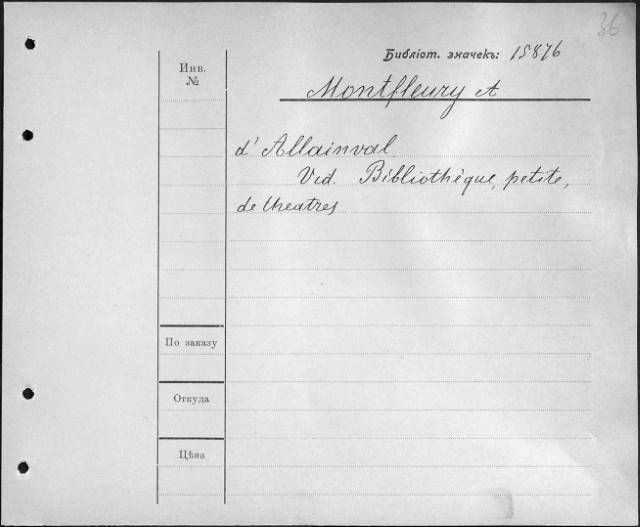 36
Библіот. значекъ: 15876
Инв.
№
Montfleury A
d' Allainval
Vid. Bibliothèque, petite,
de theatres
По заказу
Откуда
Цѣна